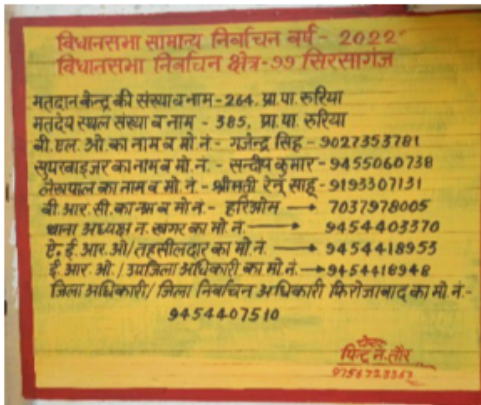 विधानसभा सामान्य निर्वाचन वर्ष - 2022
विधानसभा निर्वाचन क्षेत्र-99 सिरसागंज
मतदान केन्द्र की संख्या व नाम - 264, प्रा.पा. रुरिया
मतदेय स्थल संख्या व नाम - 385, प्रा.पा. रुरिया
बी.एल.ओ.का नाम व मो.नं.- गजेन्द्र सिंह - 9027353781
सुपरवाइजर का नाम व मो.नं. - सन्दीप कुमार - 9455060738
लेखपाल का नाम व मो.नं.- श्रीमती रेनू साहू - 9193307131
बी.आर.सी.का नाम व मो.नं.- हरिओम → 7037978005
थाना अध्यक्ष न.खंगर का मो.नं. → 9454403370
ऐ.ई.आर.ओ/तहसीलदार का मो.नं. → 9454418953
ई.आर.ओ./उपजिला अधिकारी का मो.नं. → 9454418948
जिला अधिकारी/जिला निर्वाचन अधिकारी फिरोजाबाद का मो.नं.-
9454407510
पेन्टर